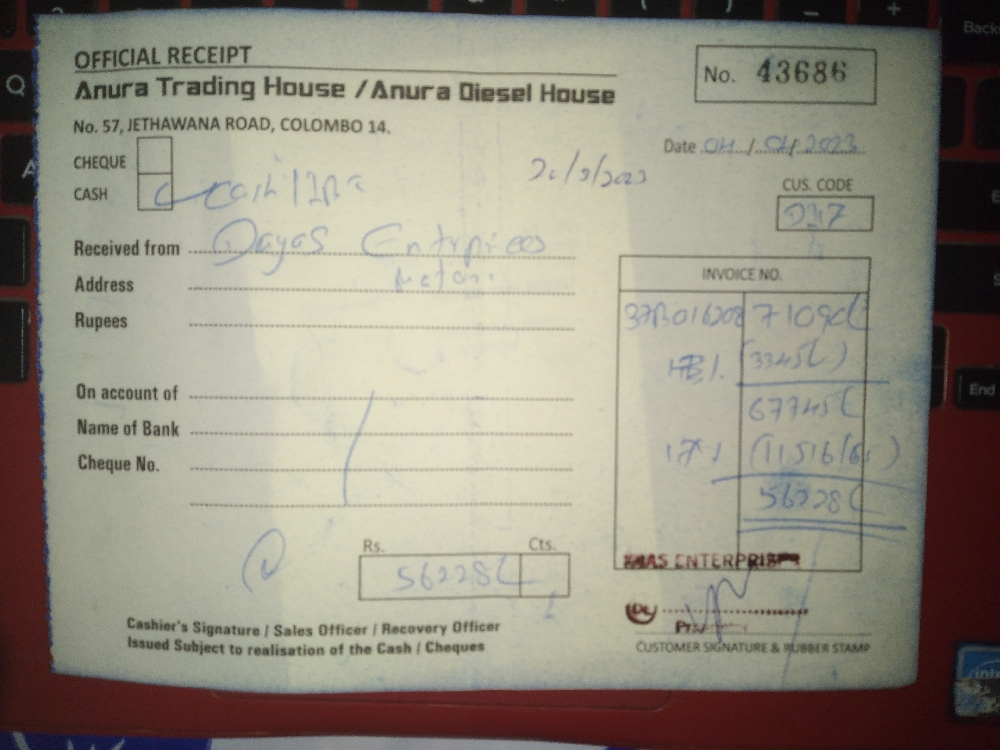 OFFICIAL RECEIPT
Anura Trading House / Anura Diesel House
No. 43686
No. 57, JETHAWANA ROAD, COLOMBO 14.
Date 04/04/2023
CHEQUE
CASH
20/3/2023
CUS. CODE
Received from Dayas Entrprices
Address
Rupees
INVOICE NO.
37B016208 71090/
(3345/)
67745/
17%
56228/
On account of
Name of Bank
Cheque No.
Rs. Cts.
56228/
ENTERPRISES
Cashier's Signature / Sales Officer / Recovery Officer
Issued Subject to realisation of the Cash / Cheques
CUSTOMER SIGNATURE & RUBBER STAMP
End